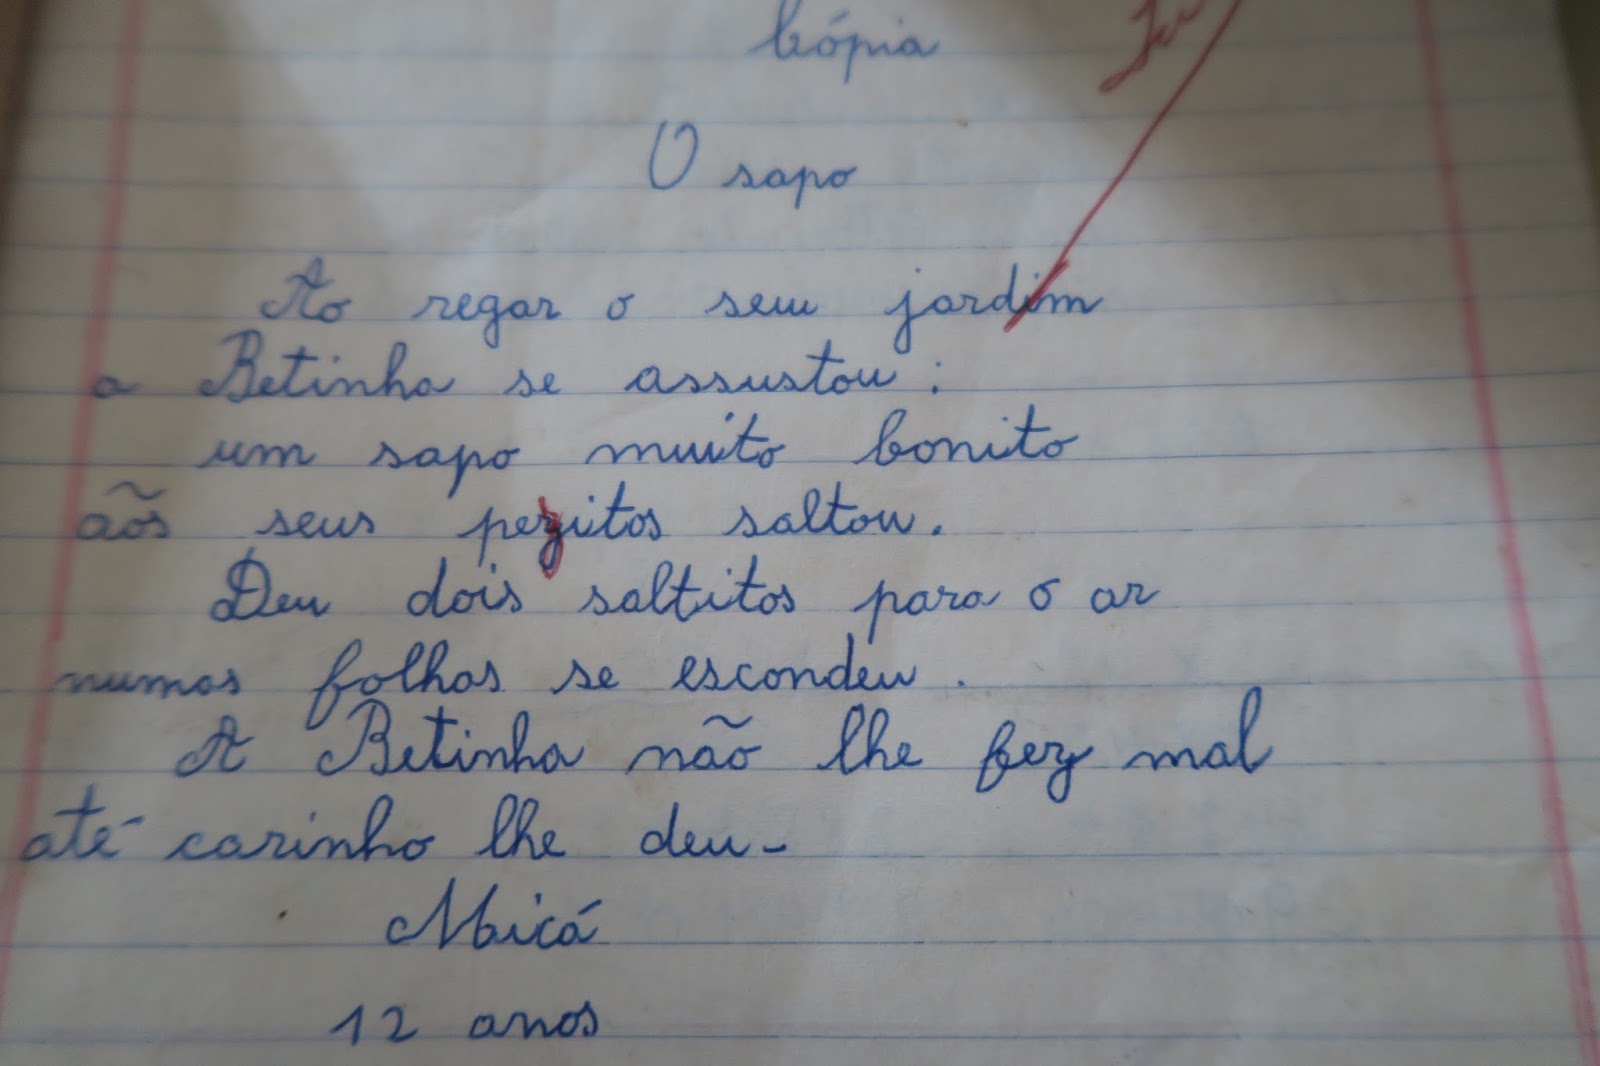 Cópia
O sapo
Ao regar o seu jardim
a Betinha se assustou:
um sapo muito bonito
aõs seus pezitos saltou.
Deu dois saltitos para o ar
numas folhas se escondeu.
A Betinha não lhe fez mal
até carinho lhe deu-
Micá
12 anos